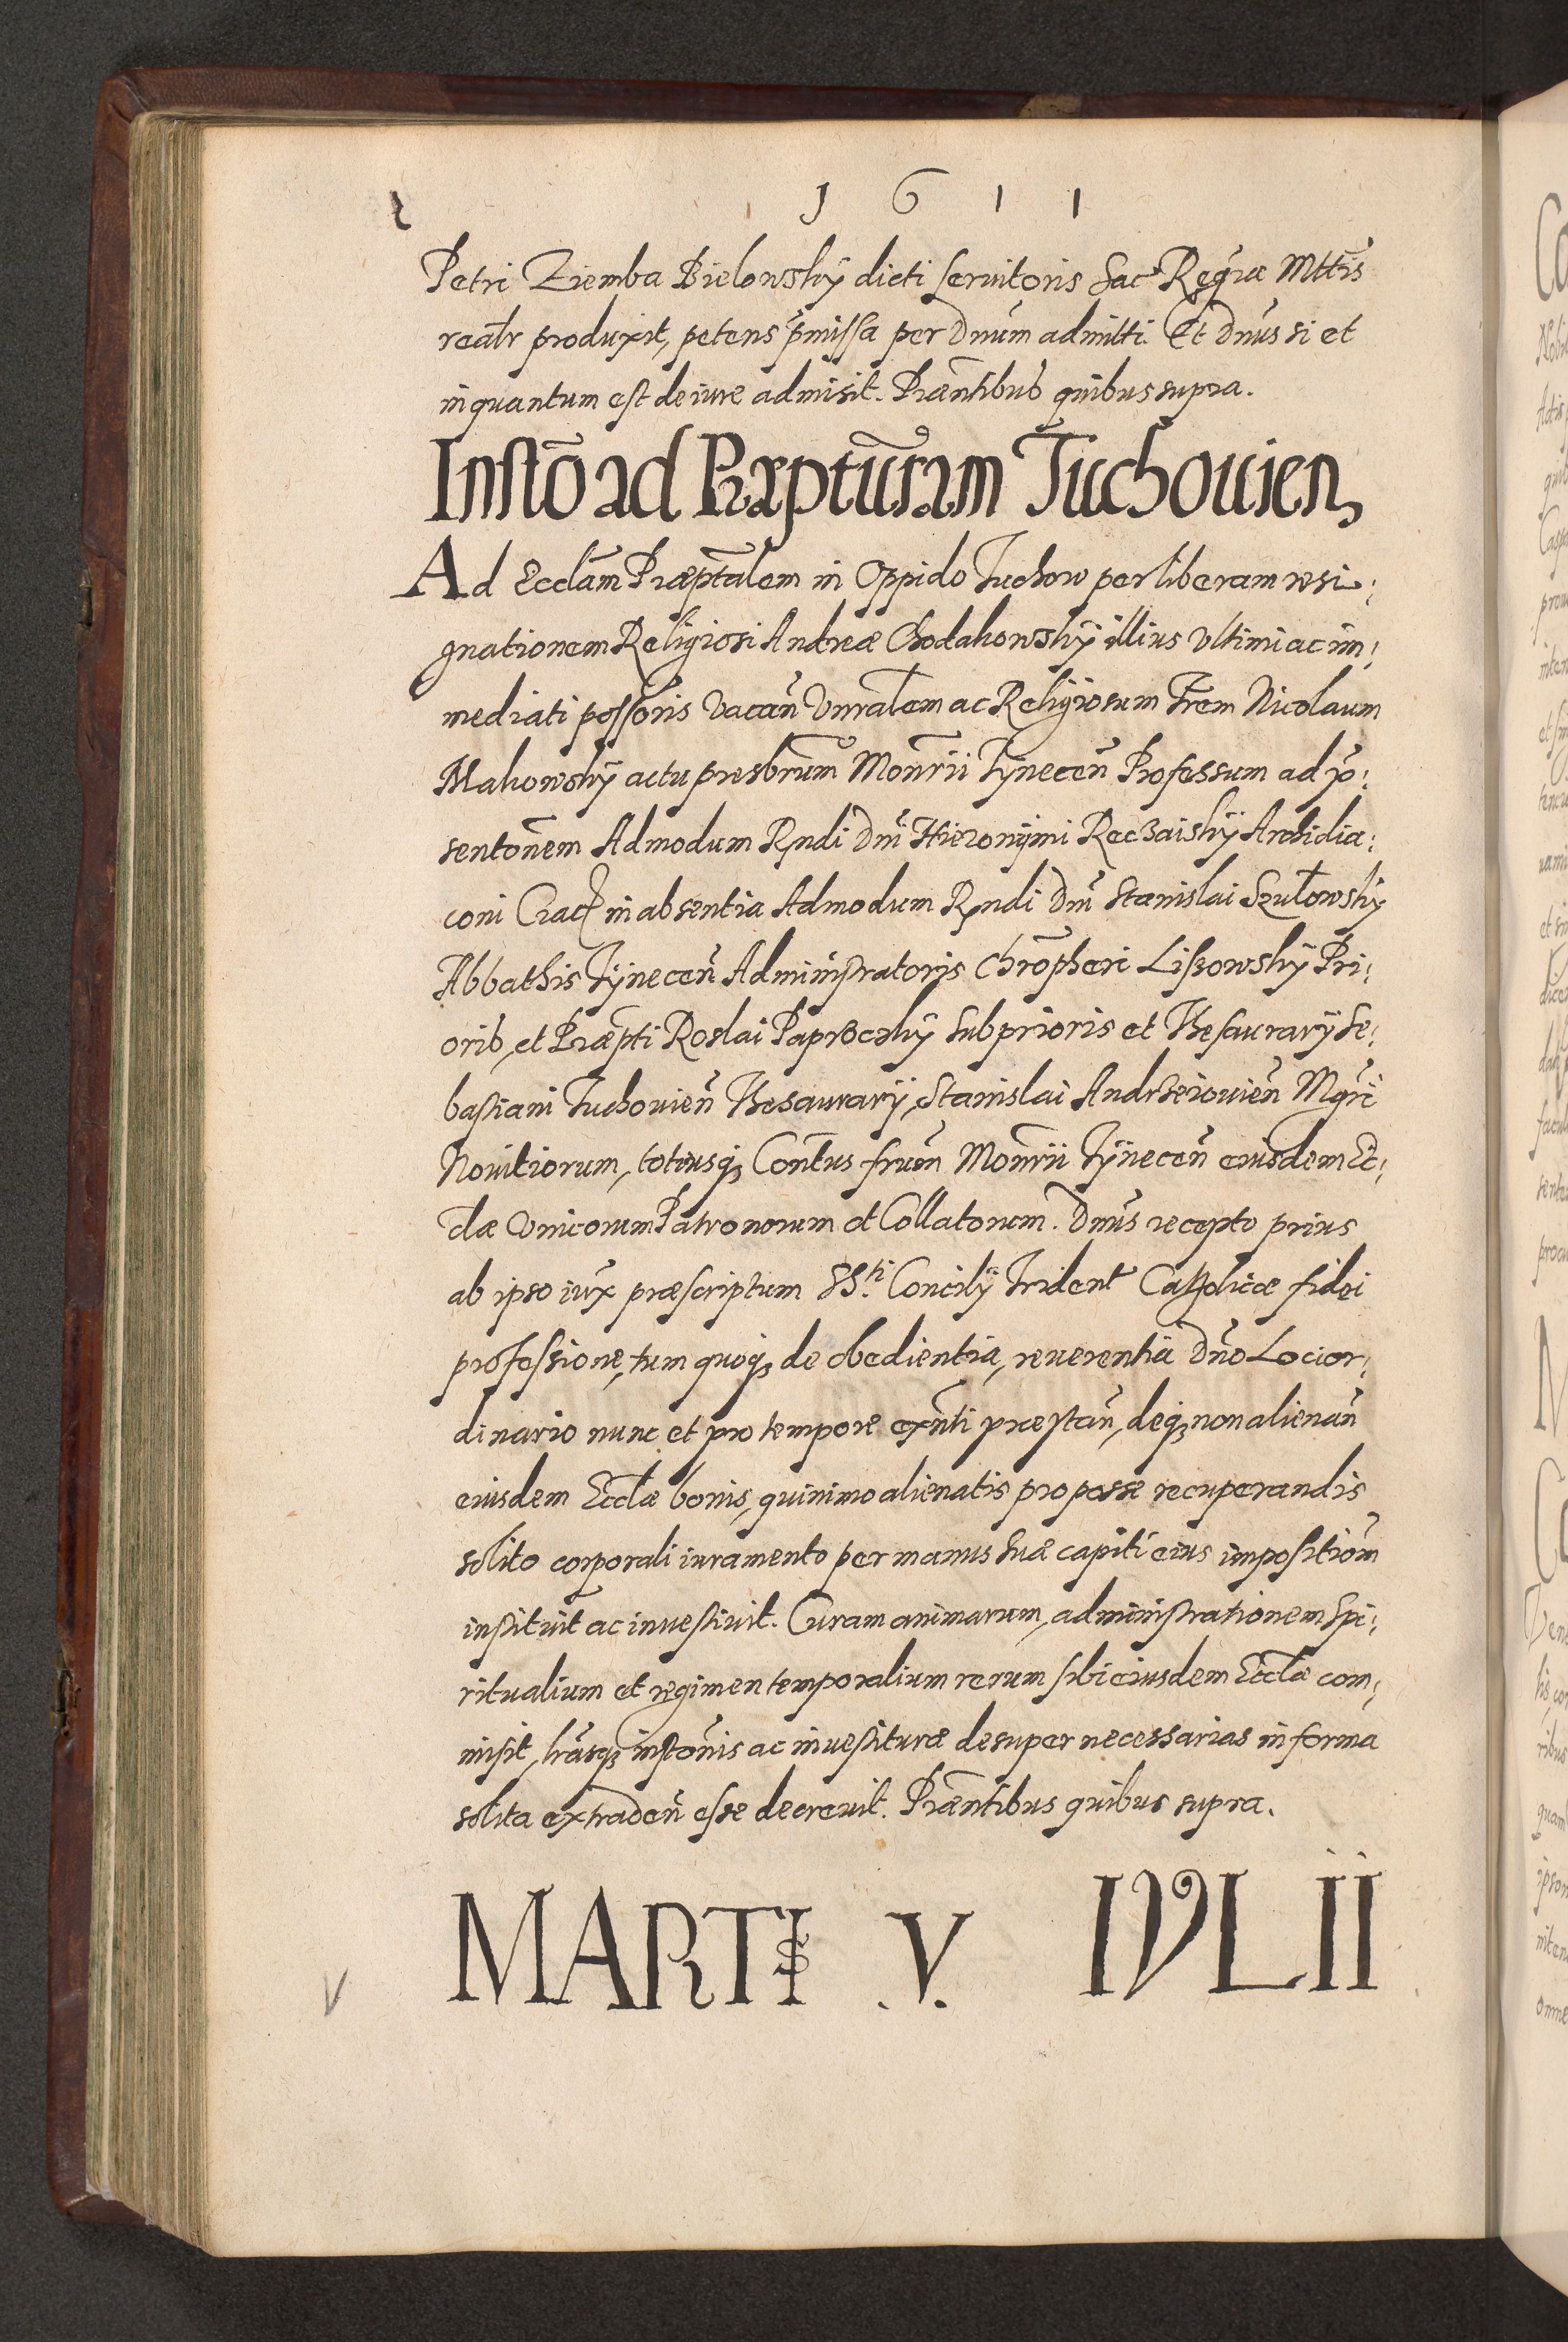 1611
Petri Ziemba Bielowskÿ dicti seruitoris Sac Regiæ Mttis
realr produxit, petens p̃missa per Dnum admitti. Et Dnus si et
inquantum est de iure admisit. Præntibus quibus supra.
Instõ ad Præptũram Tuchouien,
Ad Ecclãm Præptalem in Oppido Tuchow per liberam resi:
gnationem Religiosi Andreæ Chodakowskÿ illius vltimi ac im:
mediati possoris vacañ Vnralem ac Religiosum Frem Nicolaum
Makowskÿ actu presbrum Monrii Tÿneceñ Professum ad præ:
sentonem Admodum Rndi Dni Hieronÿmi Reczaiskÿ Archidia:
coni Crac in absentia Admodum Rndi Dni Stanislai Szulowskÿ
Abbathis Tÿneceñ Administratoris Chrõpheri Lissowskÿ Pri:
oris, et Præpti Roslai Paproczkÿ Subprioris et Thesaurarÿ Se:
bastiani Tuchouieñ Thesaurarÿ, Stanislai Andrzeiouieñ Mgri
Nouitiorum, totiusq; Contus frum Monrii Tÿneceñ eiusdem Ec:
clæ vnicorum Patronorum et Collatorum. Dnus recepto prius
ab ipso iux præscriptum SS.ti Concilÿ Trident Catholicæ fidei
professione, tum quoq; de obedientia, reuerentia Dno Loci or:
dinario nunc et pro tempore exnti præstañ, deq; non alienañ
eiusdem Ecclæ bonis, quinimo alienatis pro posse recuperandis
solito corporali iuramento per manus suæ capiti eius impositiom
instituit ac inuestiuit. Curam animarum, administrationem spi:
ritualium et regimen temporalium rerum sibi eiusdem Ecclæ com:
misit, lrasq; instonis ac inuestituræ desuper necessarias in forma
solita extradeñ esse decreuit. Præntibus quibus supra.
MARTIS .V. IVLII
V